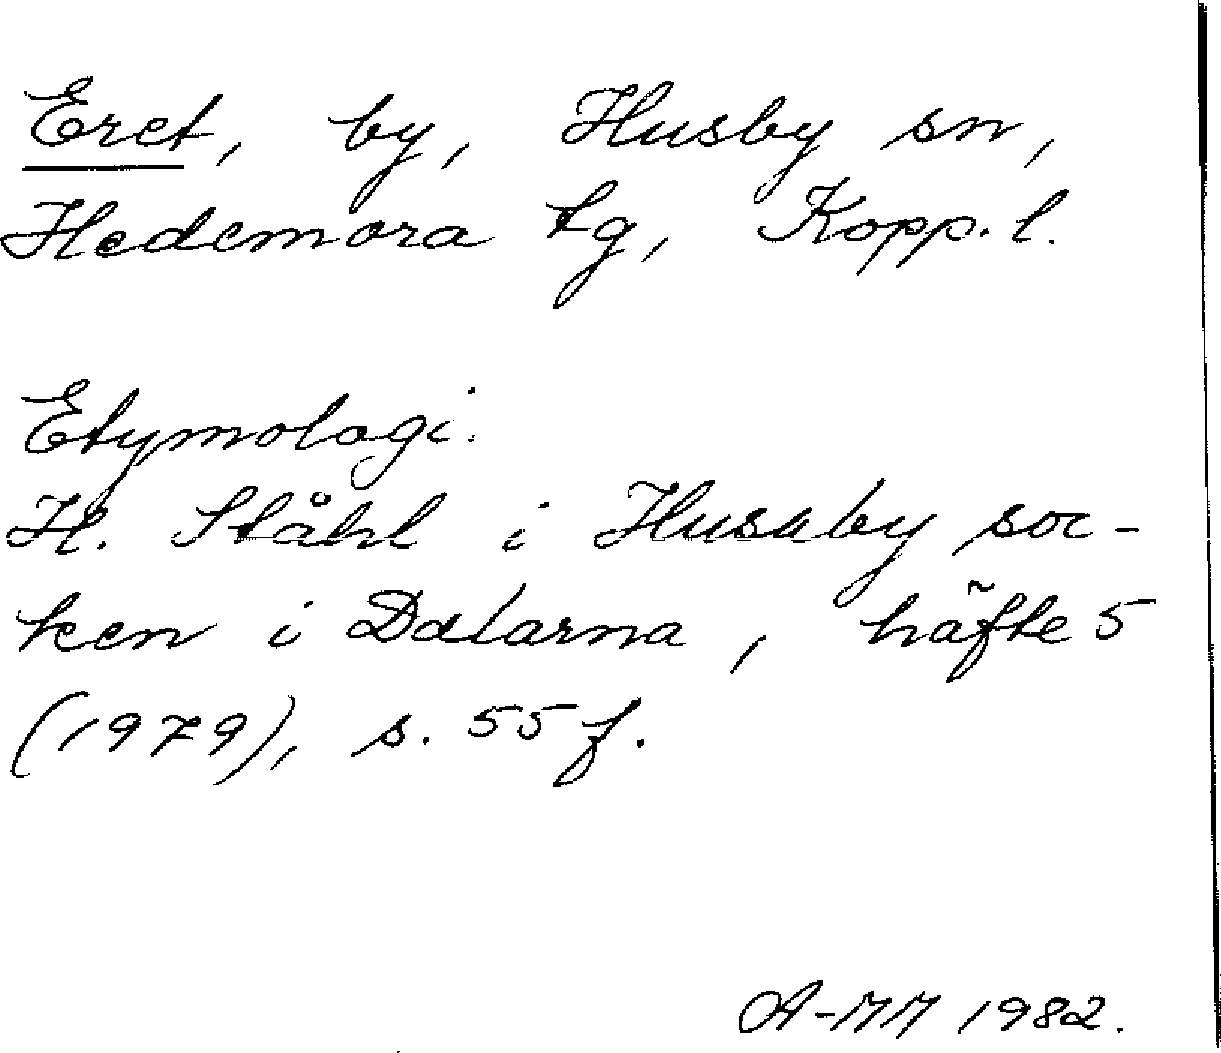 Eret, by, Husby sn,
Hedemora tg, Kopp. l.
Etymologi:
H. Ståhl i Husaby soc-
ken i Dalarna, häfte 5
(1979), s. 55 f.
A-MM 1982.